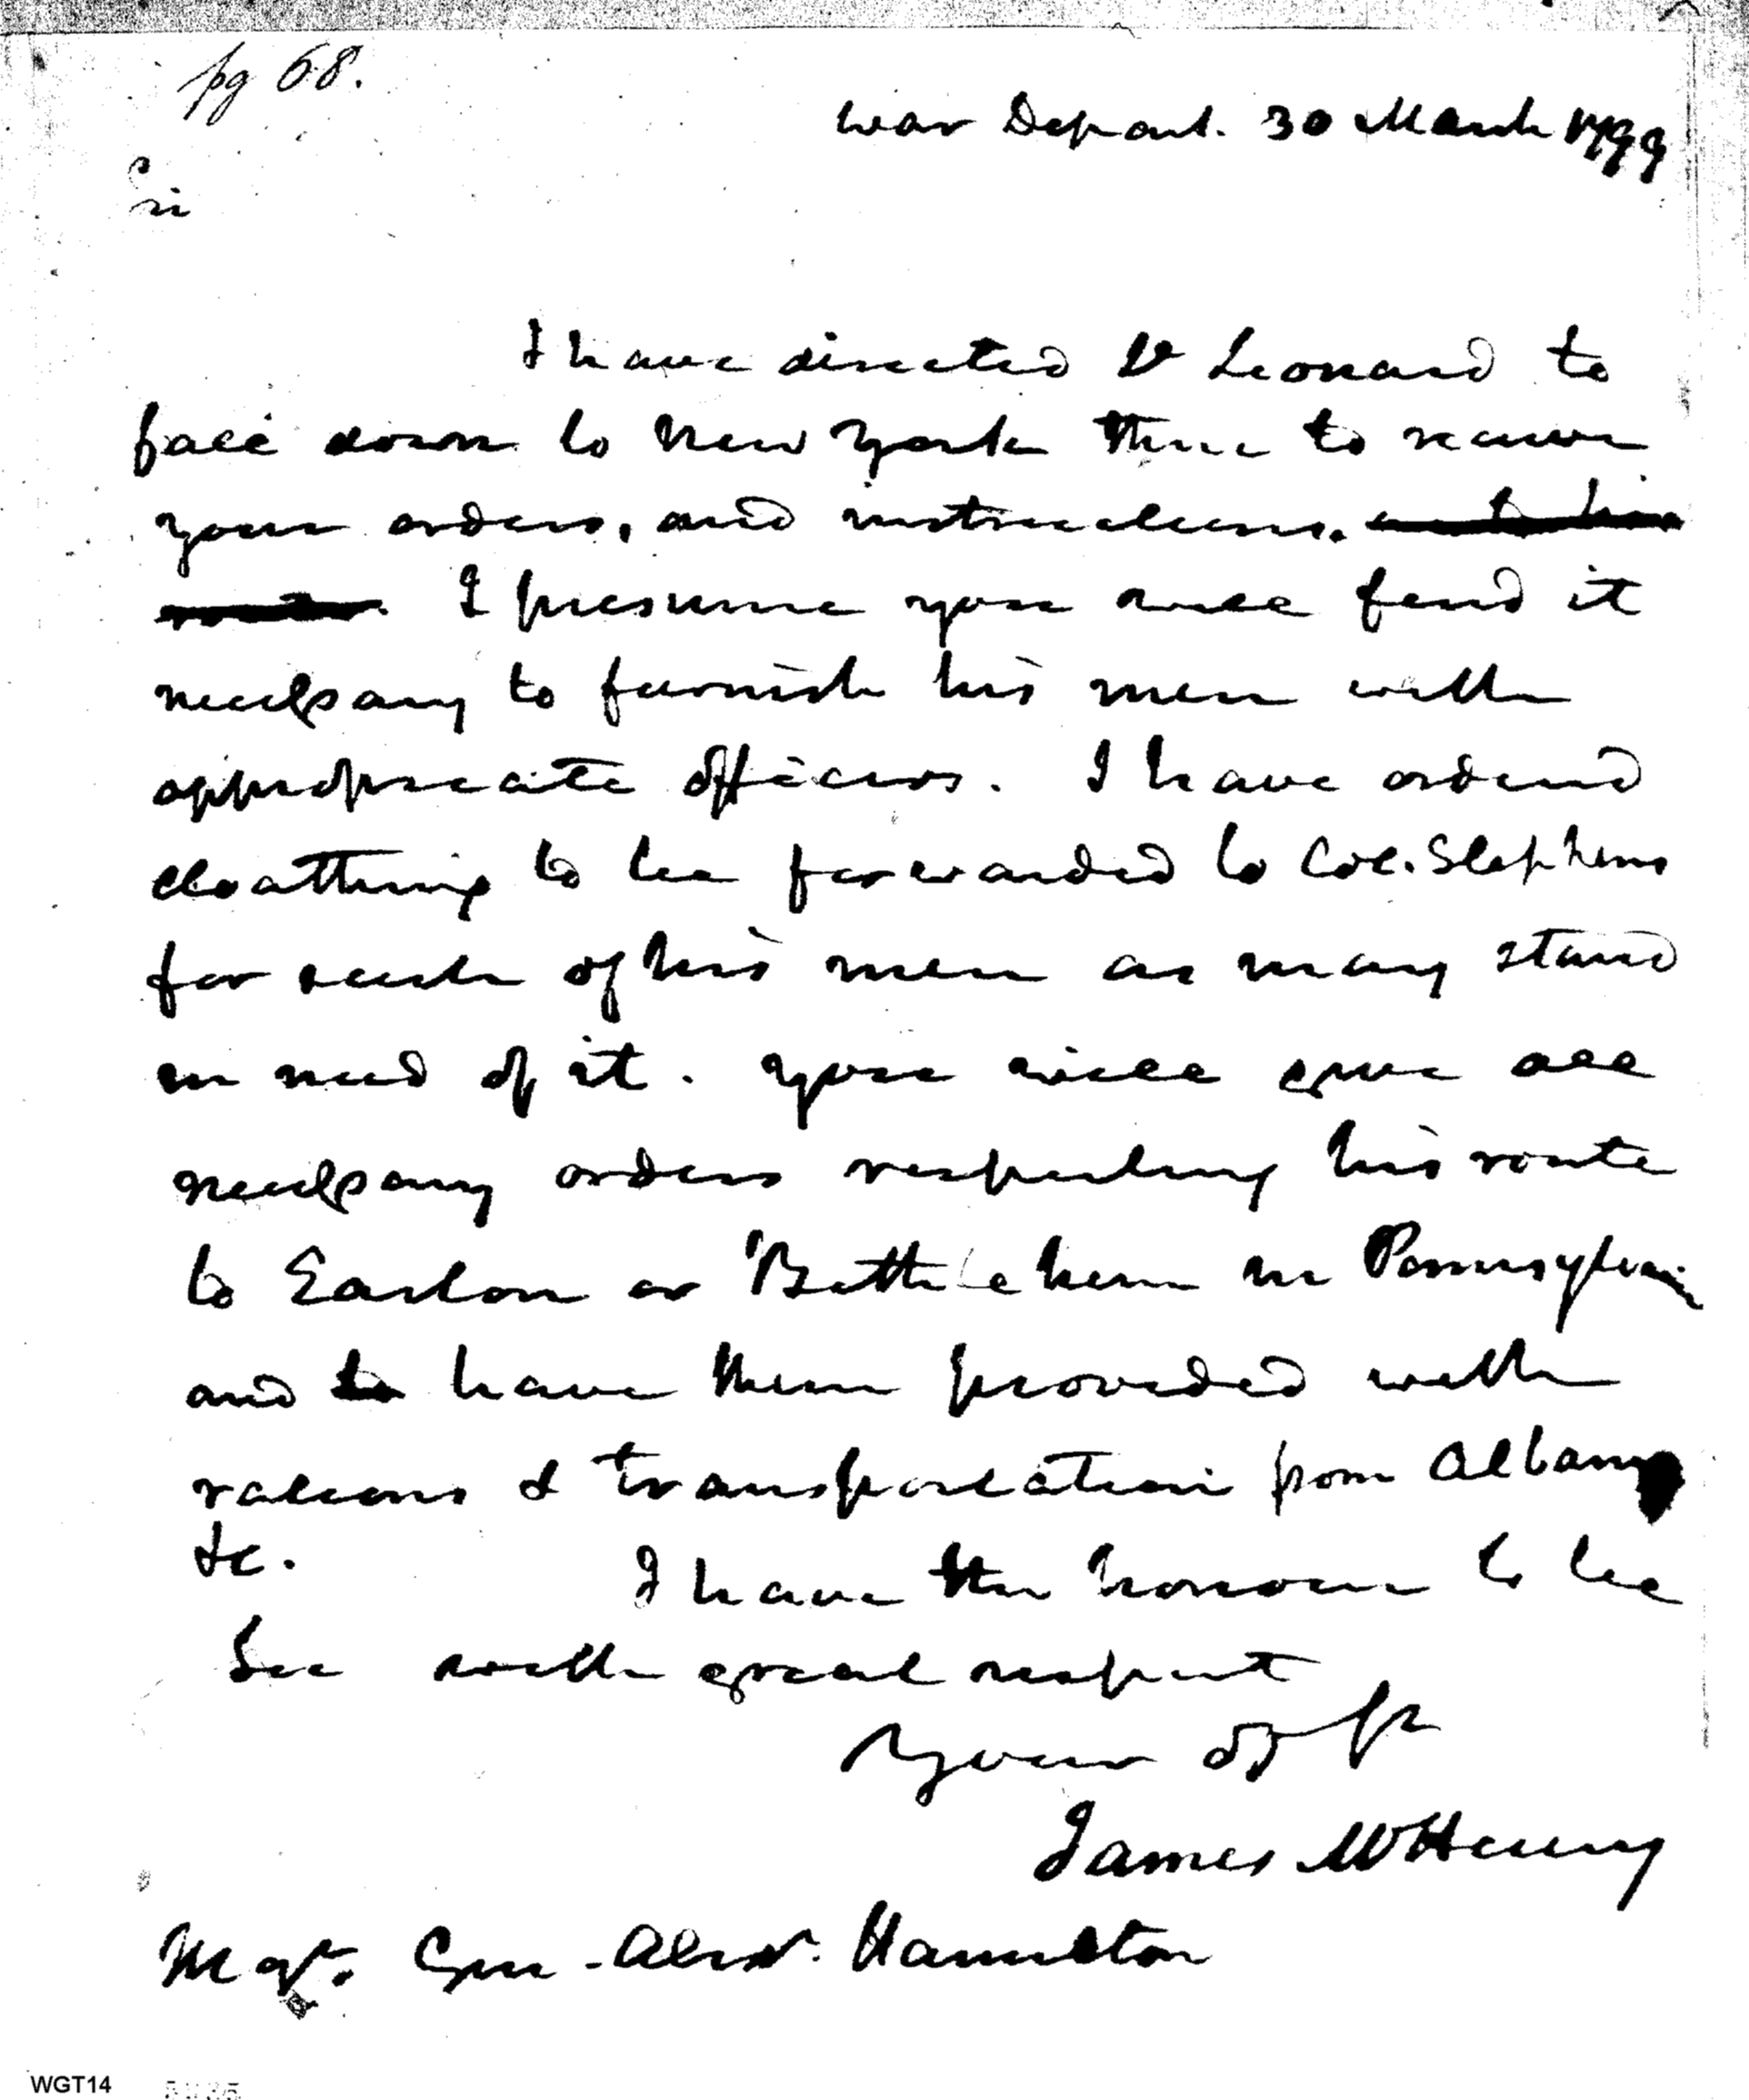 pg 68.
War Depart. 30 March 1799
Sir
I have directed Lt Leonard to
fall down to New York there to receive
your orders, and instructions. as to his
route. I presume you will find it
necessary to furnish his men with
appropriate officers. I have ordered
cloathing to be forwarded to Col. Stephens
for such of his men as may stand
in need of it. You will give all
necessary orders respecting his route
to Easton or Bethlehem in Pennsylvain
and to have them provided with
rations & transportation from Albany
&c.
I have the honour to be
Sir with great respect
Your ob st
James McHenry
Majr. Gen. Alexr. Hamilton
WGT14